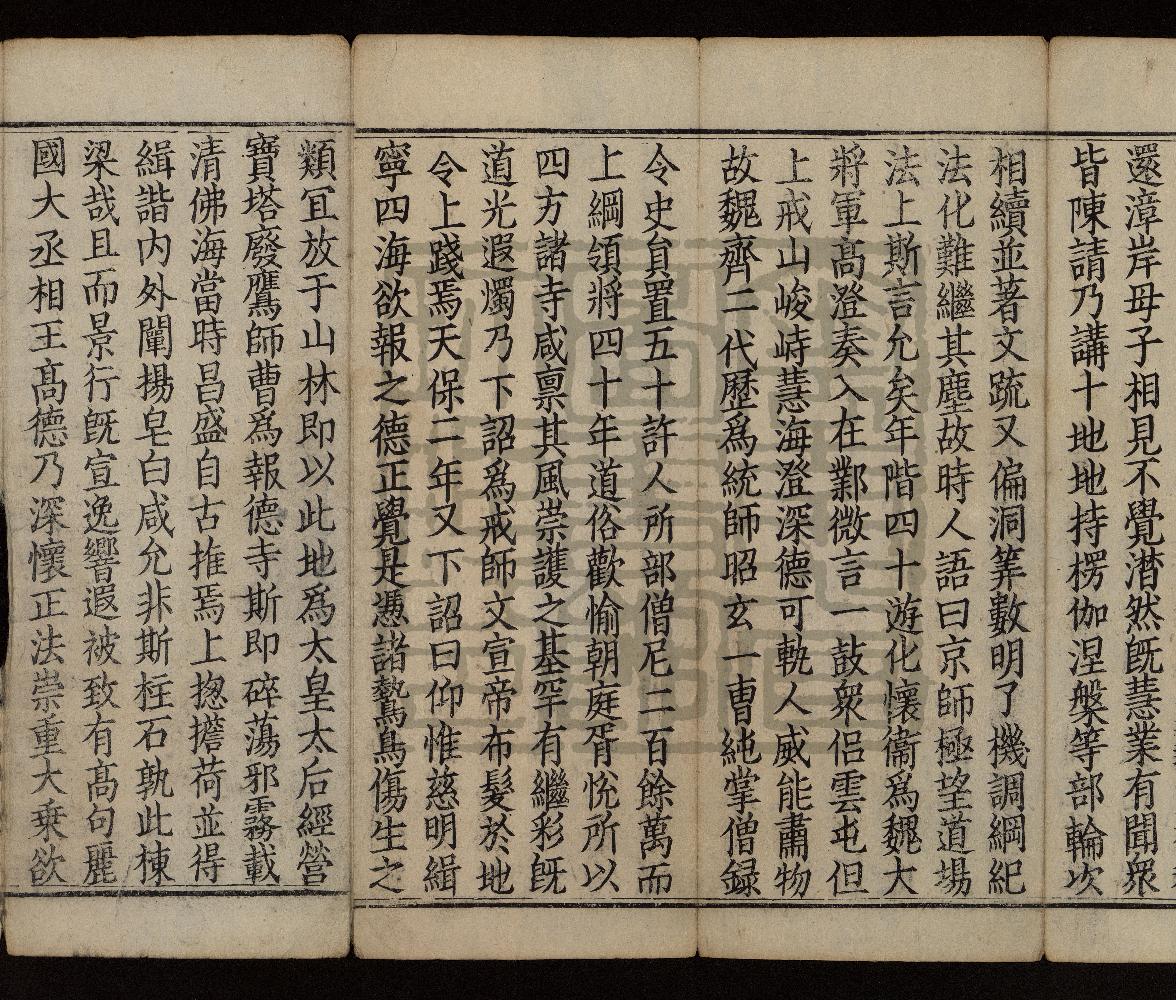 還漳岸母子相見不覺潸然既慧業有聞衆
皆陳請乃講十地地持楞伽涅槃等部輪次
相續並著文疏又偏洞筭數明了機調綱紀
法化難繼其塵故時人語曰京師極望道場
法上斯言允矣年階四十遊化懷衞爲魏大
將軍髙澄奏入在鄴微言一鼓衆侣雲屯但
上戒山峻峙慧海澄深德可軌人威能肅物
故魏齊二代歷爲統師昭玄一曹純掌僧録
令史貟置五十許人所部僧尼二百餘萬而
上綱領將四十年道俗歡愉朝庭胥悅所以
四方諸寺咸禀其風崇護之基罕有繼彩既
道光遐燭乃下詔爲戒師文宣帝布髮於地
令上踐焉天保二年又下詔曰仰惟慈明緝
寧四海欲報之德正覺是憑諸鷙鳥傷生之
類冝放于山林即以此地爲太皇太后經營
寶塔廢鷹師曹爲報德寺斯即碎蕩邪霧載
清佛海當時昌盛自古推焉上揔擔荷並得
緝諧内外闡揚皂白咸允非斯柱石孰此棟
梁哉且而景行既宣逸響遐被致有髙句麗
國大丞相王髙德乃深懷正法崇重大乘欲